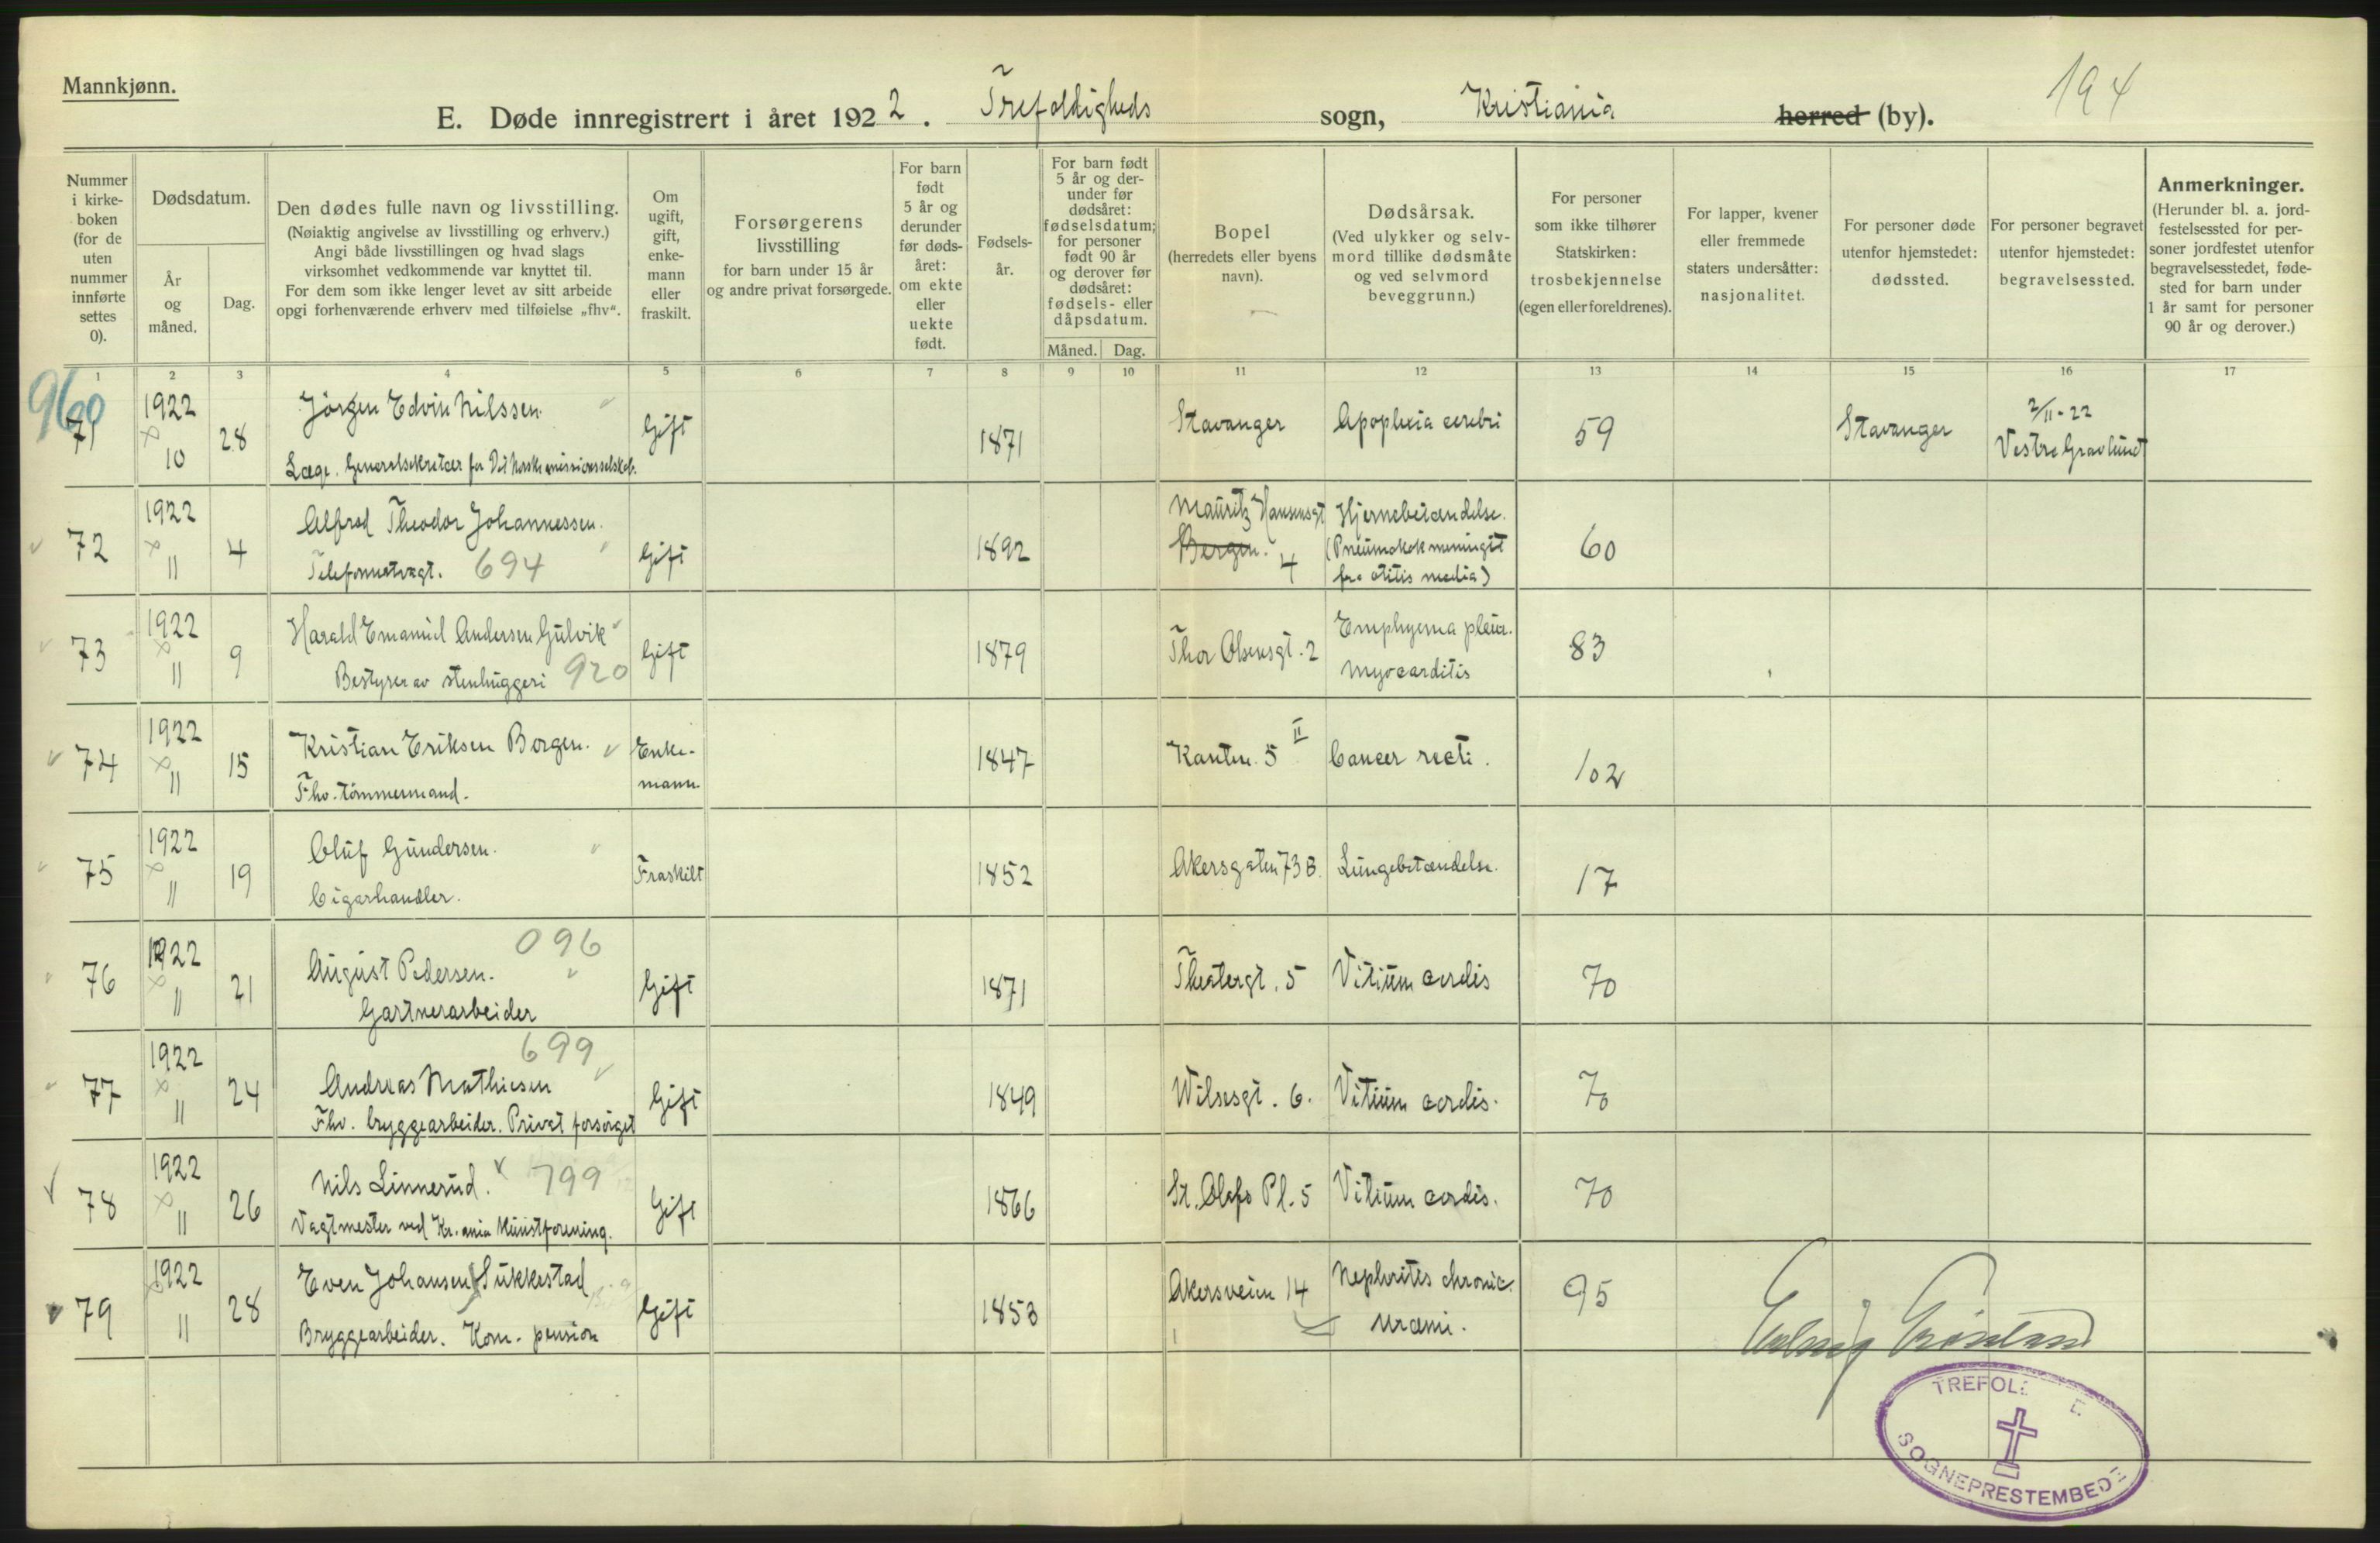 Mannkjønn.
194
E. Døde innregistrert i året 1922. Trefoldigheds sogn, Kristiania herred (by).
Nummer i kirke-boken (for de uten nummer innførte settes 0).
Dødsdatum.
År og måned.
Dag.
Den dødes fulle navn og livsstilling.
(Nøiaktig angivelse av livsstilling og erhverv.)
Angi både livsstillingen og hvad slags
virksomhet vedkommende var knyttet til.
For dem som ikke lenger levet av sitt arbeide
opgi forhenværende erhverv med tilføielse „fhv“.
Om ugift, gift, enke-mann eller fraskilt.
Forsørgerens livsstilling
for barn under 15 år
og andre privat forsørgede.
For barn født 5 år og derunder før døds-året: om ekte eller uekte født.
Fødsels-år.
For barn født 5 år og der-under før dødsåret: fødselsdatum; for personer født 90 år og derover før dødsåret: fødsels- eller dåpsdatum.
Måned.
Dag.
Bopel
(herredets eller byens navn).
Dødsårsak.
(Ved ulykker og selv-mord tillike dødsmåte og ved selvmord beveggrunn.)
For personer som ikke tilhører Statskirken: trosbekjennelse (egen eller foreldrenes).
For lapper, kvener eller fremmede staters undersåtter: nasjonalitet.
For personer døde utenfor hjemstedet: dødssted.
For personer begravet utenfor hjemstedet: begravelsessted.
Anmerkninger.
(Herunder bl. a. jord-festelsessted for per-soner jordfestet utenfor begravelsesstedet, føde-sted for barn under 1 år samt for personer 90 år og derover.)
1 2 3 4 5 6 7 8 9 10 11 12 13 14 15 16 17
960
71 1922 10 28 Jörgen Edvin Nilssen. Gift 1871 Stavanger Apoplexia cerebri 59 Stavanger 2/11-22 Vestre Gravlund
Læge. Generalsekretær for Det norske missionsselskab.
72 1922 11 4 Alfred Theodor Johannessen. Gift 1892 Mauritz Hansensgt Bergen. 4 Hjernebetændelse. (Pneumokokmeningit fra otitis media) 60
Telefonvagt. 694
73 1922 11 9 Harald Emanuel Andersen Gulvik Gift 1879 Thor Olsensgt. 2 Emphyema pleur. Myocarditis 83
Bestyrer av stenhuggeri 920
74 1922 11 15 Kristian Eriksen Borgen. Enke-mann. 1847 Kanten 5 II Cancer recti. 102
Fhv. tömmermand.
75 1922 11 19 Oluf Gundersen. Fraskilt 1852 Akersgaten 73 B. Lungebetændelse. 17
Cigarhandler.
096
76 1922 11 21 August Pedersen. Gift 1871 Theatergt. 5 Vitium cordis 70
Gartnerarbeider
699
77 1922 11 24 Andreas Mathiesen Gift 1849 Wilsesgt. 6. Vitium cordis. 70
Fhv. bryggearbeider. Privat forsörget
78 1922 11 26 Nils Linnerud. 799 Gift 1866 St. Olafs Pl. 5 Vitium cordis. 70
Vagtmester ved Kr.ania Kunstforening.
79 1922 11 28 Even Johansen Sukkestad Gift 1853 Akersveien 14 Nephritis chronic. Uræmi. 95
Bryggearbeider. Kom. pension
TREFOL
SOGNEPRESTEMBEDE